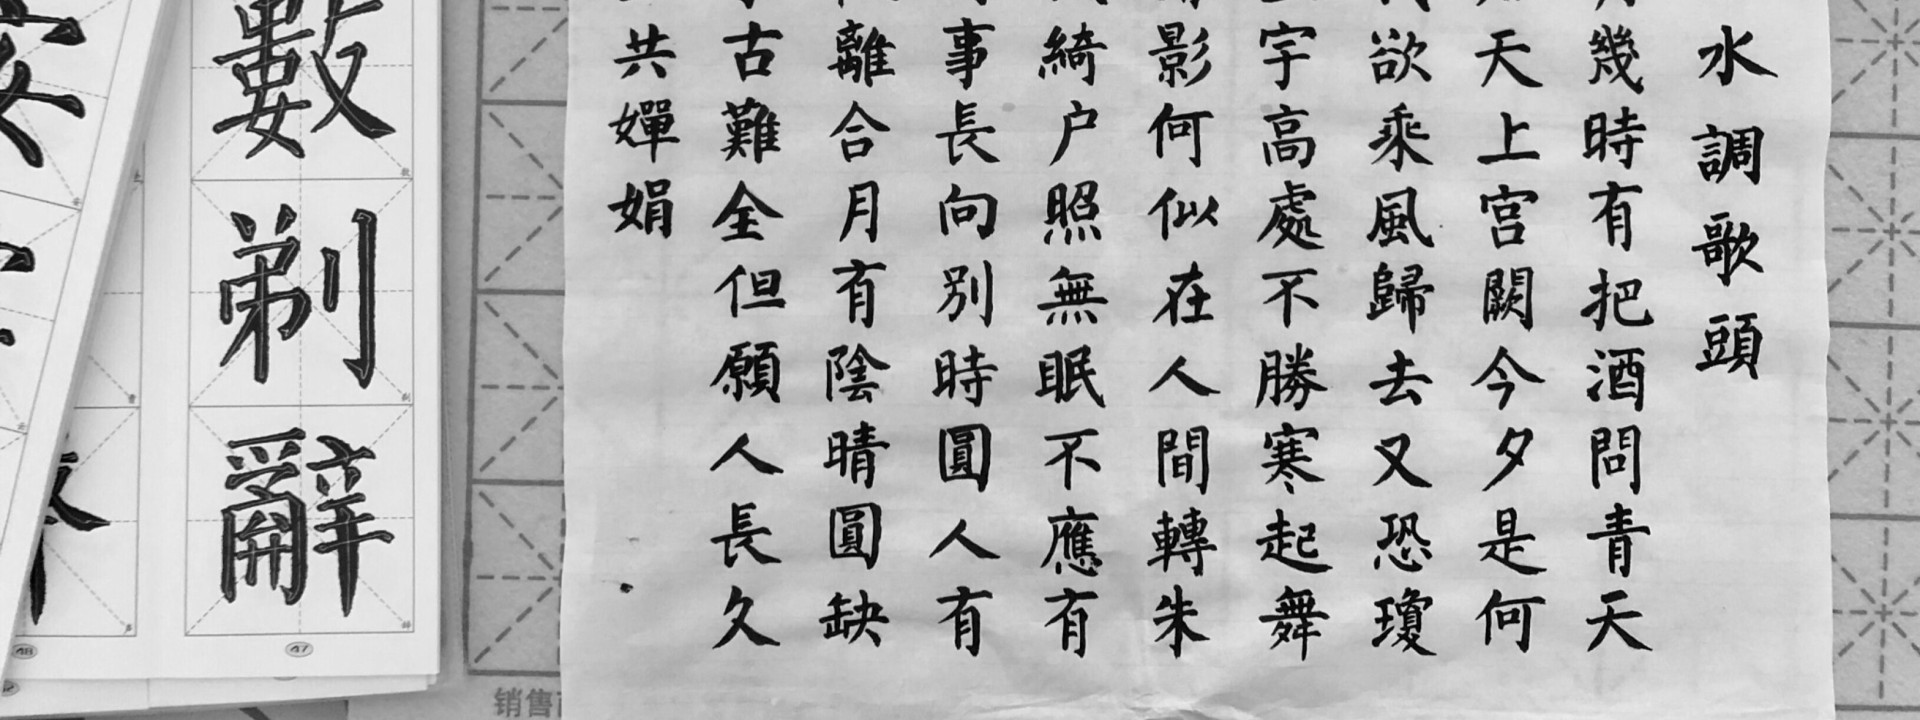 水調歌頭
幾時有把酒問青天
天上宮闕今夕是何
欲乘風歸去又恐瓊
宇高處不勝寒起舞
影何似在人間轉朱
綺户照無眠不應有
事長向别時圓人有
離合月有陰晴圓缺
古難全但願人長久
共嬋娟
數
剃
辭
47
48
销售